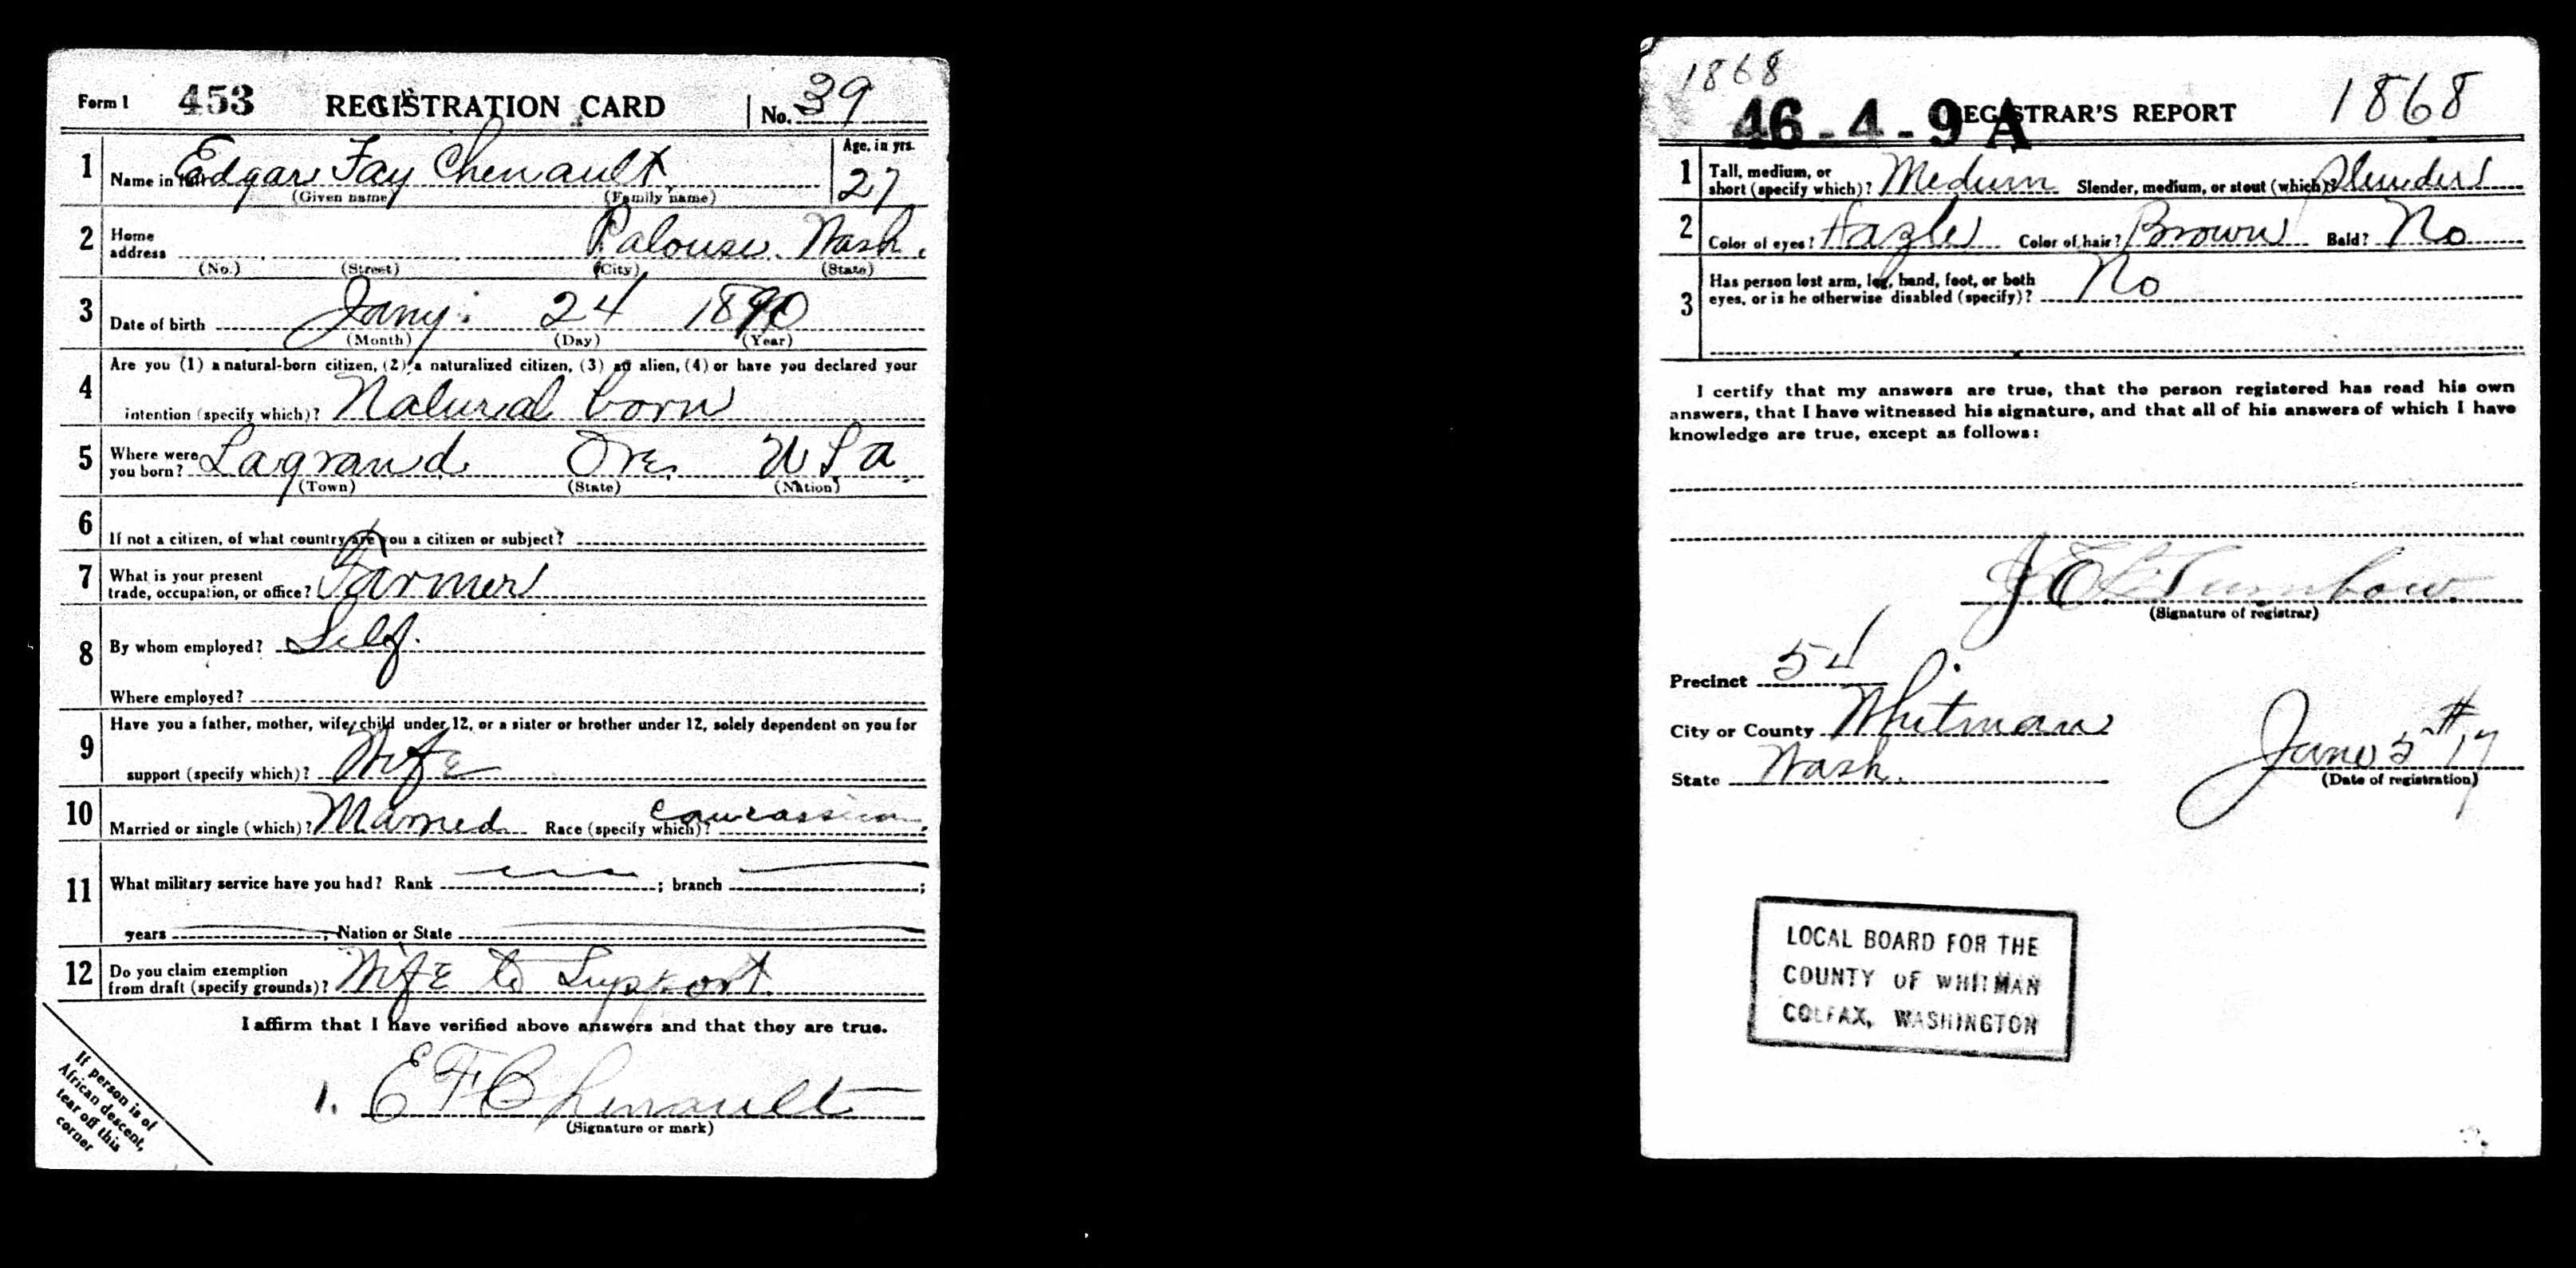 Form 1 453 REGISTRATION CARD No. 39
1 Name in full Edgar Fay Chenault Age, in yrs. 27
(Given name) (Family name)
2 Home address Palouse Wash.
(No.) (Street) (City) (State)
3 Date of birth Jany. 24 1890
(Month) (Day) (Year)
4 Are you (1) a natural-born citizen, (2) a naturalized citizen, (3) an alien, (4) or have you declared your
intention (specify which)? Natural born
5 Where were you born? Lagrand Ore. U S a
(Town) (State) (Nation)
6 If not a citizen, of what country are you a citizen or subject?
7 What is your present trade, occupation, or office? Farmer
8 By whom employed? Self.
Where employed?
9 Have you a father, mother, wife, child under 12, or a sister or brother under 12, solely dependent on you for
support (specify which)? Wife
10 Married or single (which)? Married Race (specify which)? Caucassian
11 What military service have you had? Rank ; branch ;
years ; Nation or State
12 Do you claim exemption from draft (specify grounds)? Wife to Support.
I affirm that I have verified above answers and that they are true.
1. E F Chenault
(Signature or mark)
If person is of
African descent,
tear off this
corner
1868
46-4-9 A REGISTRAR'S REPORT 1868
1 Tall, medium, or short (specify which)? Medium Slender, medium, or stout (which)? Slender
2 Color of eyes? Hazle Color of hair? Brown Bald? No
3 Has person lost arm, leg, hand, foot, or both eyes, or is he otherwise disabled (specify)? No
I certify that my answers are true, that the person registered has read his own
answers, that I have witnessed his signature, and that all of his answers of which I have
knowledge are true, except as follows:
J. E. Turnbow
(Signature of registrar)
Precinct 54
City or County Whitman
State Wash. June 5th 17
(Date of registration)
LOCAL BOARD FOR THE
COUNTY OF WHITMAN
COLFAX, WASHINGTON